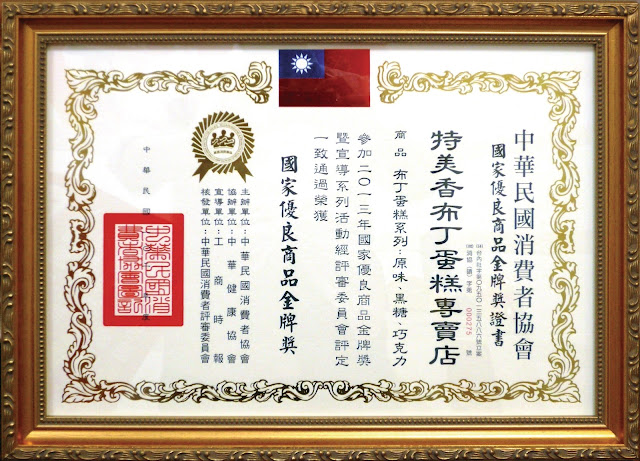 中華民國消費者協會
國家優良商品金牌獎證書
000275
特美香布丁蛋糕專賣店
商品 布丁蛋糕系列:原味、黑糖、巧克力
參加二〇一三年國家優良商品金牌獎
暨宣導系列活動經評審委員會評定
一致通過榮獲
國家優良商品金牌獎
主辦單位:中華民國消費者協會
協辦單位:中華健康協會
宣導單位:工商時報
核發單位:中華民國消費者評審委員會
中華民國